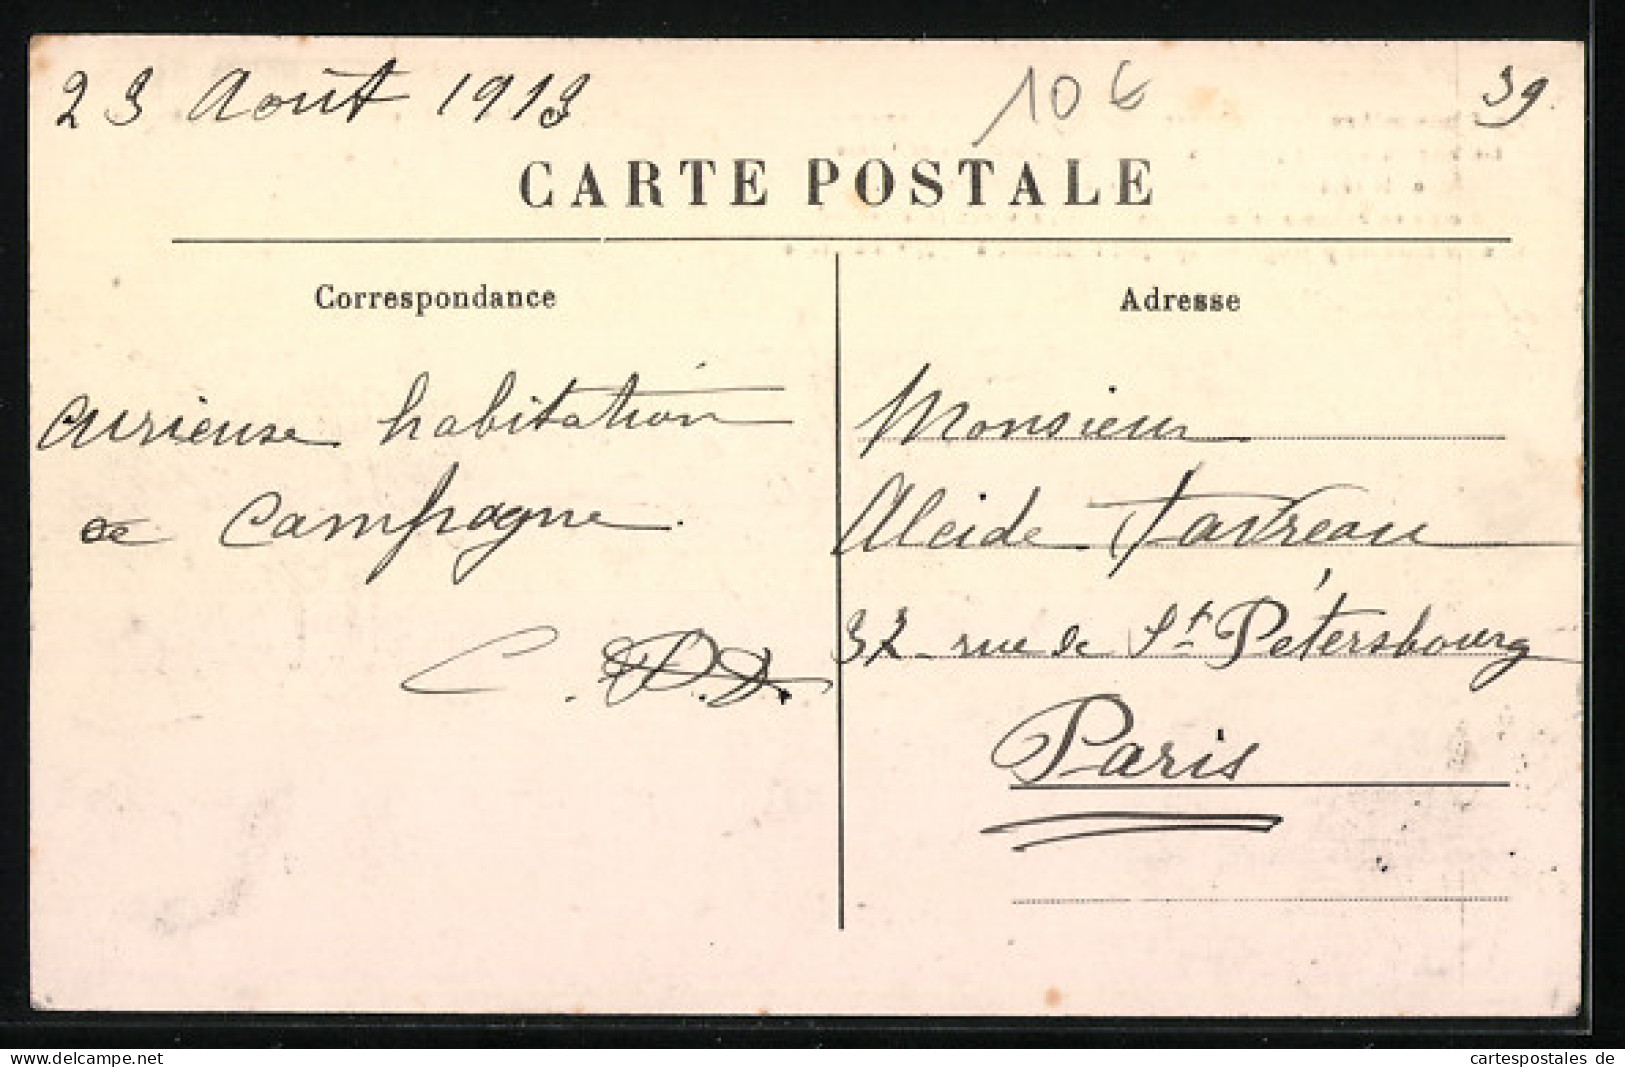 23 Août 1913
10€
39
CARTE POSTALE
Correspondance
Adresse
Curieuse habitation
de Campagne.
C. P. D.
Monsieur
Alcide Favreau
37 rue de St Pétersbourg
Paris
cartespostales de
www.delcampe.net